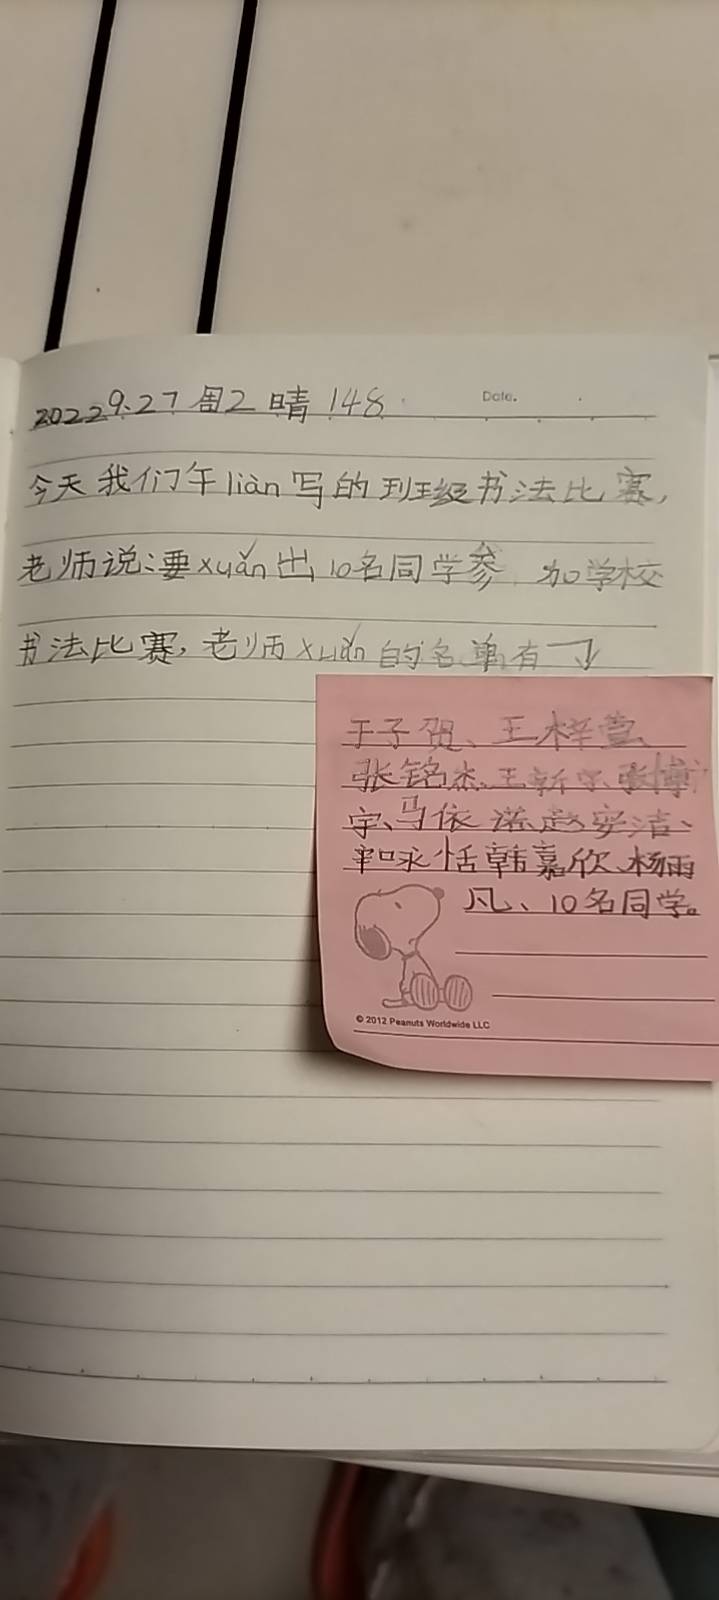 2022 9.27 周2 晴 148
Date.
今天我们午liàn写的班级书法比赛,
老师说:要xuǎn出10名同学参加学校
书法比赛,老师xuǎn的名单有
于子贺、王梓萱、
张铭杰、王新宇、张博
宇、马依诺、赵安洁、
和咏恬韩嘉欣、杨雨
凡、10名同学。
© 2012 Peanuts Worldwide LLC